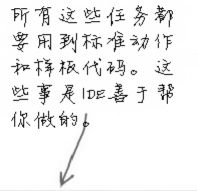 所有这些任务都
要用到标准动作
和样板代码。这
些事是IDE善于帮
你做的。